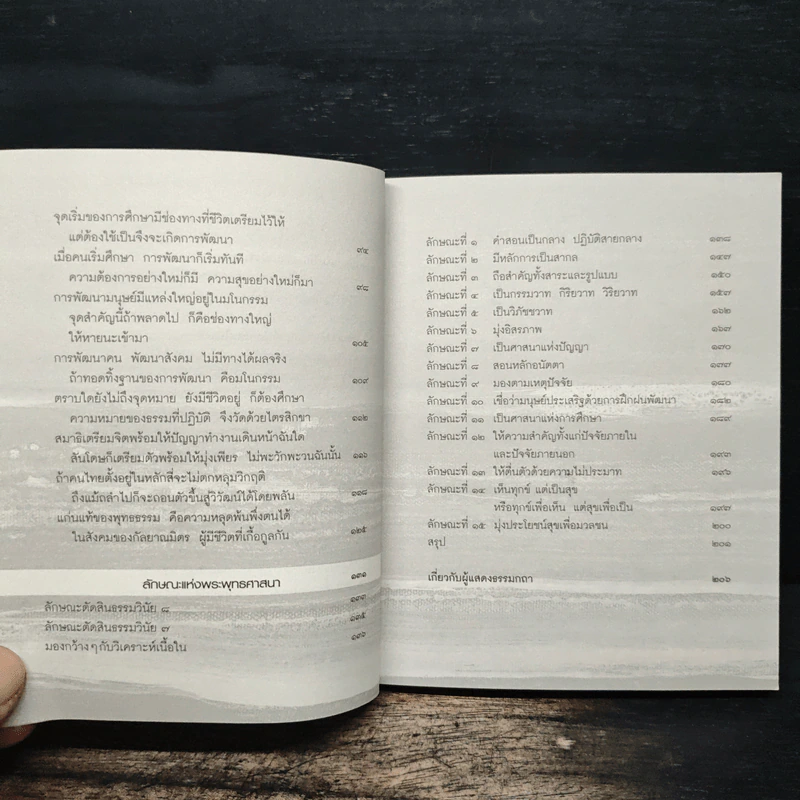 จุดเริ่มของการศึกษามีช่องทางที่ชีวิตเตรียมไว้ให้
แต่ต้องใช้เป็นจึงจะเกิดการพัฒนา ๙๔
เมื่อคนเริ่มศึกษา การพัฒนาก็เริ่มทันที
ความต้องการอย่างใหม่ก็มี ความสุขอย่างใหม่ก็มา ๙๘
การพัฒนามนุษย์มีแหล่งใหญ่อยู่ในมโนกรรม
จุดสำคัญนี้ถ้าพลาดไป ก็คือช่องทางใหญ่
ให้หายนะเข้ามา ๑๐๕
การพัฒนาคน พัฒนาสังคม ไม่มีทางได้ผลจริง
ถ้าทอดทิ้งฐานของการพัฒนา คือมโนกรรม ๑๐๙
ตราบใดยังไม่ถึงจุดหมาย ยังมีชีวิตอยู่ ก็ต้องศึกษา
ความหมายของธรรมที่ปฏิบัติ จึงวัดด้วยไตรสิกขา ๑๑๒
สมาธิเตรียมจิตพร้อมให้ปัญญาทำงานเดินหน้าฉันใด
สันโดษก็เตรียมตัวพร้อมให้มุ่งเพียร ไม่พะวักพะวนฉันนั้น ๑๑๖
ถ้าคนไทยตั้งอยู่ในหลักสี่จะไม่ตกหลุมวิกฤติ
ถึงแม้ถลำไปก็จะถอนตัวขึ้นสู่วิวัฒน์ได้โดยพลัน ๑๑๘
แก่นแท้ของพุทธธรรม คือความหลุดพ้นพึ่งตนได้
ในสังคมของกัลยาณมิตร ผู้มีชีวิตที่เกื้อกูลกัน ๑๒๕
ลักษณะแห่งพระพุทธศาสนา ๑๓๑
ลักษณะตัดสินธรรมวินัย ๘ ๑๓๓
ลักษณะตัดสินธรรมวินัย ๗ ๑๓๕
มองกว้าง ๆ กับวิเคราะห์เนื้อใน ๑๓๖
ลักษณะที่ ๑ คำสอนเป็นกลาง ปฏิบัติสายกลาง ๑๓๘
ลักษณะที่ ๒ มีหลักการเป็นสากล ๑๔๗
ลักษณะที่ ๓ ถือสำคัญทั้งสาระและรูปแบบ ๑๕๐
ลักษณะที่ ๔ เป็นกรรมวาท กิริยวาท วิริยวาท ๑๕๗
ลักษณะที่ ๕ เป็นวิภัชชวาท ๑๖๒
ลักษณะที่ ๖ มุ่งอิสรภาพ ๑๖๗
ลักษณะที่ ๗ เป็นศาสนาแห่งปัญญา ๑๗๐
ลักษณะที่ ๘ สอนหลักอนัตตา ๑๗๗
ลักษณะที่ ๙ มองตามเหตุปัจจัย ๑๘๐
ลักษณะที่ ๑๐ เชื่อว่ามนุษย์ประเสริฐด้วยการฝึกฝนพัฒนา ๑๘๒
ลักษณะที่ ๑๑ เป็นศาสนาแห่งการศึกษา ๑๘๙
ลักษณะที่ ๑๒ ให้ความสำคัญทั้งแก่ปัจจัยภายใน
และปัจจัยภายนอก ๑๙๓
ลักษณะที่ ๑๓ ให้ตื่นตัวด้วยความไม่ประมาท ๑๙๖
ลักษณะที่ ๑๔ เห็นทุกข์ แต่เป็นสุข
หรือทุกข์เพื่อเห็น แต่สุขเพื่อเป็น ๑๙๗
ลักษณะที่ ๑๕ มุ่งประโยชน์สุขเพื่อมวลชน ๒๐๐
สรุป ๒๐๑
เกี่ยวกับผู้แสดงธรรมกถา ๒๐๖